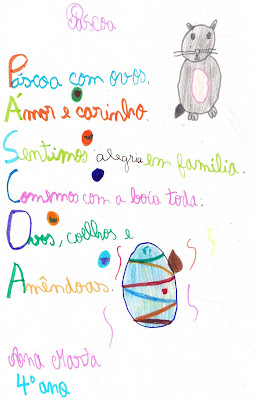 Páscoa
Páscoa com ovos.
Ámor e carinho.
Sentimos alegria em família.
Comemos com a boca toda.
Ovos, coelhos e
Amêndoas.
Ana Marta
4º ano